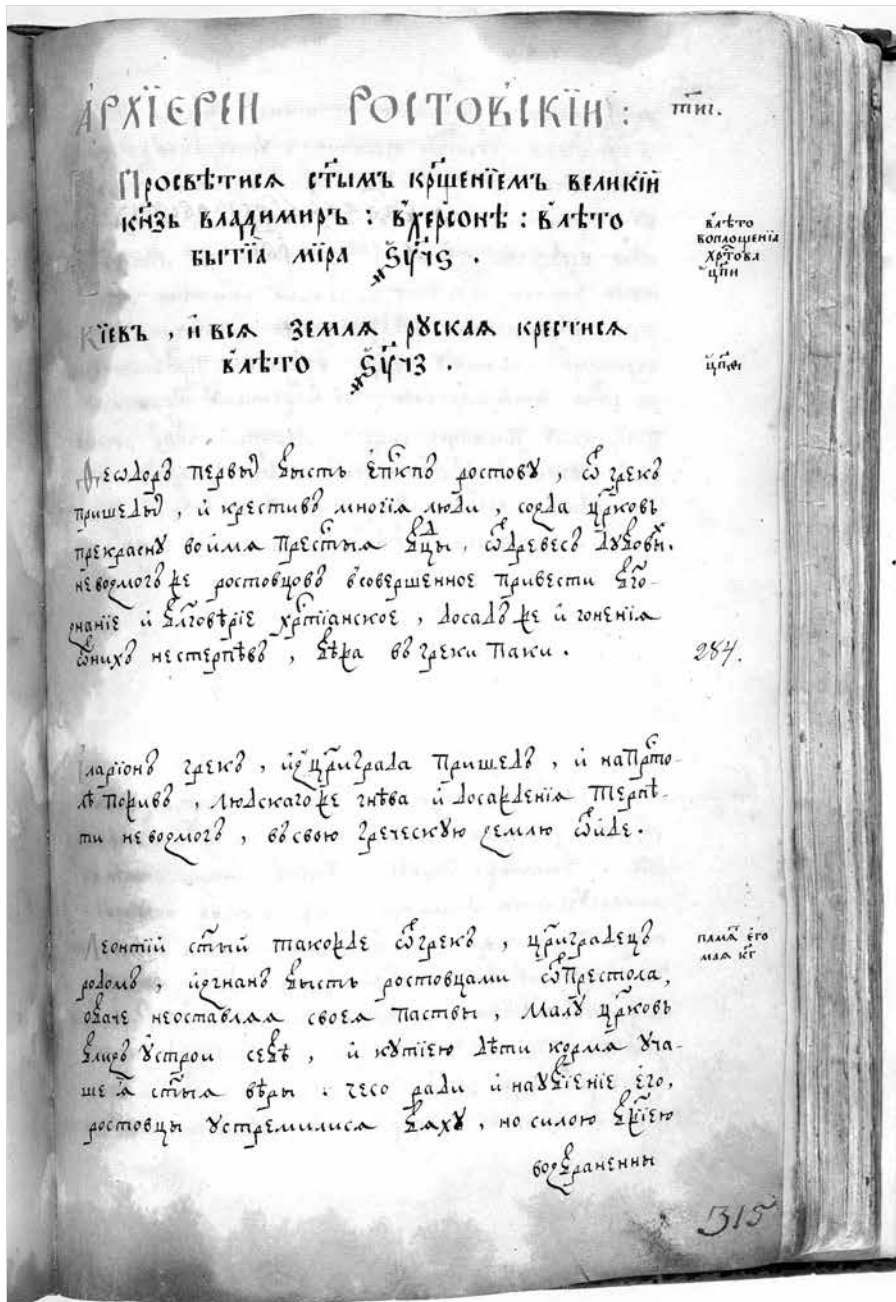 АРХІЕРЕИ РОСТОВСКІИ :
тиі.
Просвѣтися ст҃ымъ крщ҃еніемъ великій
кн҃зь владдимиръ : в херсонѣ : в лѣто
бытіа міра ҂ѕуч҃ѕ .
в лѣто
воплощеніа
хрт҃ова
цп҃и
Кіевъ , и вся земля руская крестися
в лѣто ҂ѕуч҃з .
цп҃ѳ
Ѳеодоръ первый бысть еп҃кпъ ростову , ѿ грекъ
пришедый , и крестивъ многія люди , созда цр҃ковь
прекрасну во имя прест҃ыя бц҃ы , ѿ древесъ дубовых.
не возмогъ же ростовцовъ в совершенное привести бг҃о-
знаніе и бл҃говѣріе хрт҃іанское , досадъ же и гоненія
ѿ нихъ не стерпѣвъ , бѣжа въ греки паки .
284.
Іларіонъ грекъ , из цр҃играда пришедъ , и на прт҃о-
лѣ поживъ , людскаго же гнѣва и досажденія терпѣ-
ти не возмогъ , въ свою греческую землю ѿиде .
Леонтій ст҃ый такожде ѿ грекъ , цр҃иградецъ
родомъ , изгнанъ бысть ростовцами ѿ престола,
обаче не оставляя своея паствы , малу цр҃ковь
близъ устрои себѣ , и кутіею дѣти кормя уча-
ше я ст҃ыя вѣры . чесо ради и на убіеніе его,
ростовцы устремилися бяху , но силою бж҃іею
памя҃ его
маія кг҃
возбраненны
315